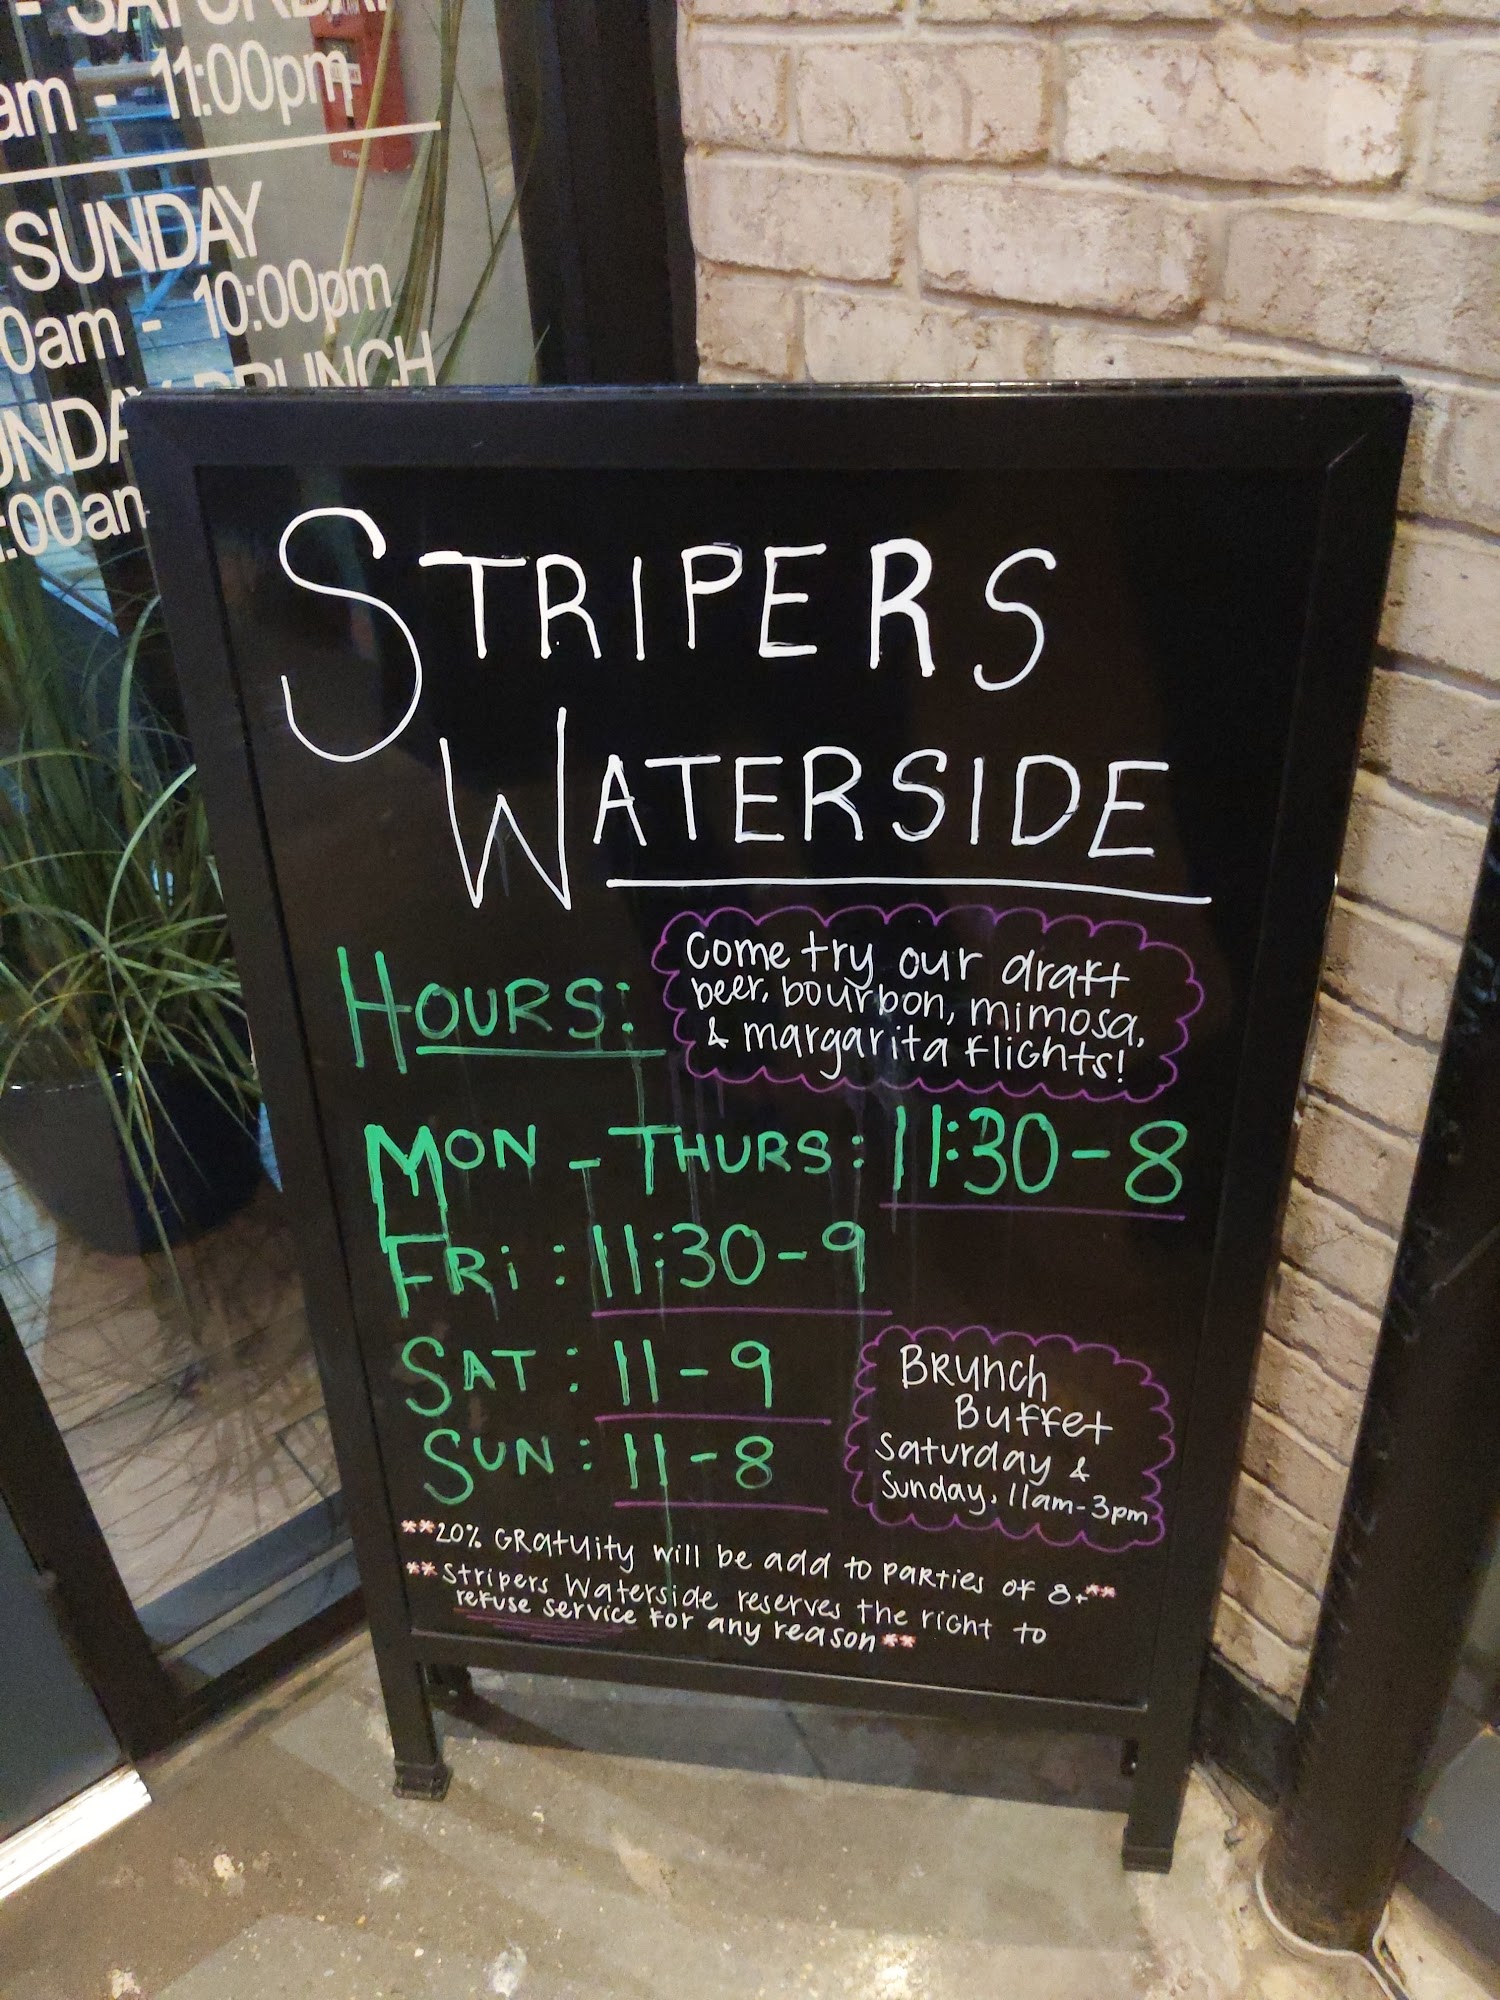 - SATURDAY
am - 11:00pm
SUNDAY
0am - 10:00pm
BRUNCH
:00am
STRIPERS
WATERSIDE
HOURS:
Come try our draft
beer, bourbon, mimosa,
& margarita flights!
MON - THURS: 11:30-8
FRi: 11:30-9
SAT: 11-9
SUN: 11-8
Brunch
Buffet
Saturday &
Sunday, 11am-3pm
**20% Gratuity will be add to parties of 8+**
**Stripers Waterside reserves the right to
refuse service for any reason**